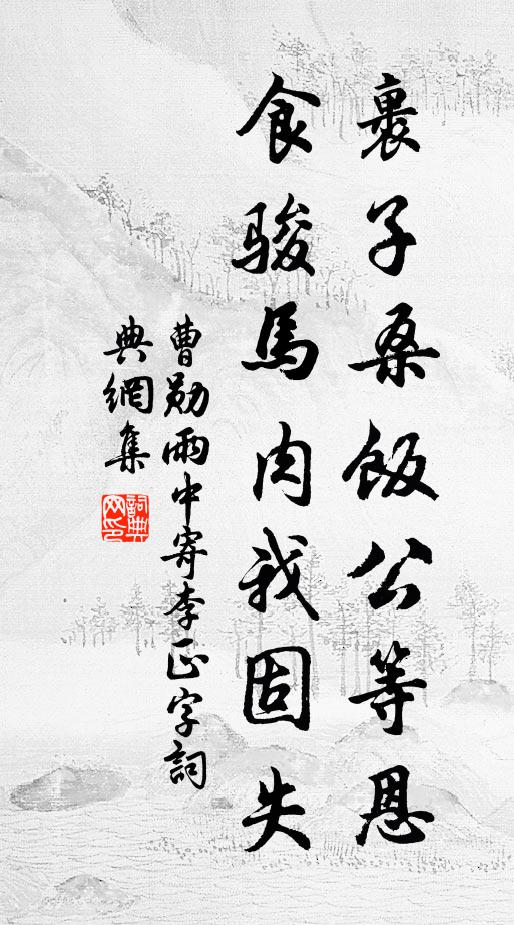 裹子桑飯公等恩
食駿馬肉我固失
曹勛雨中寄李正字詞
典網集
詞典
网印